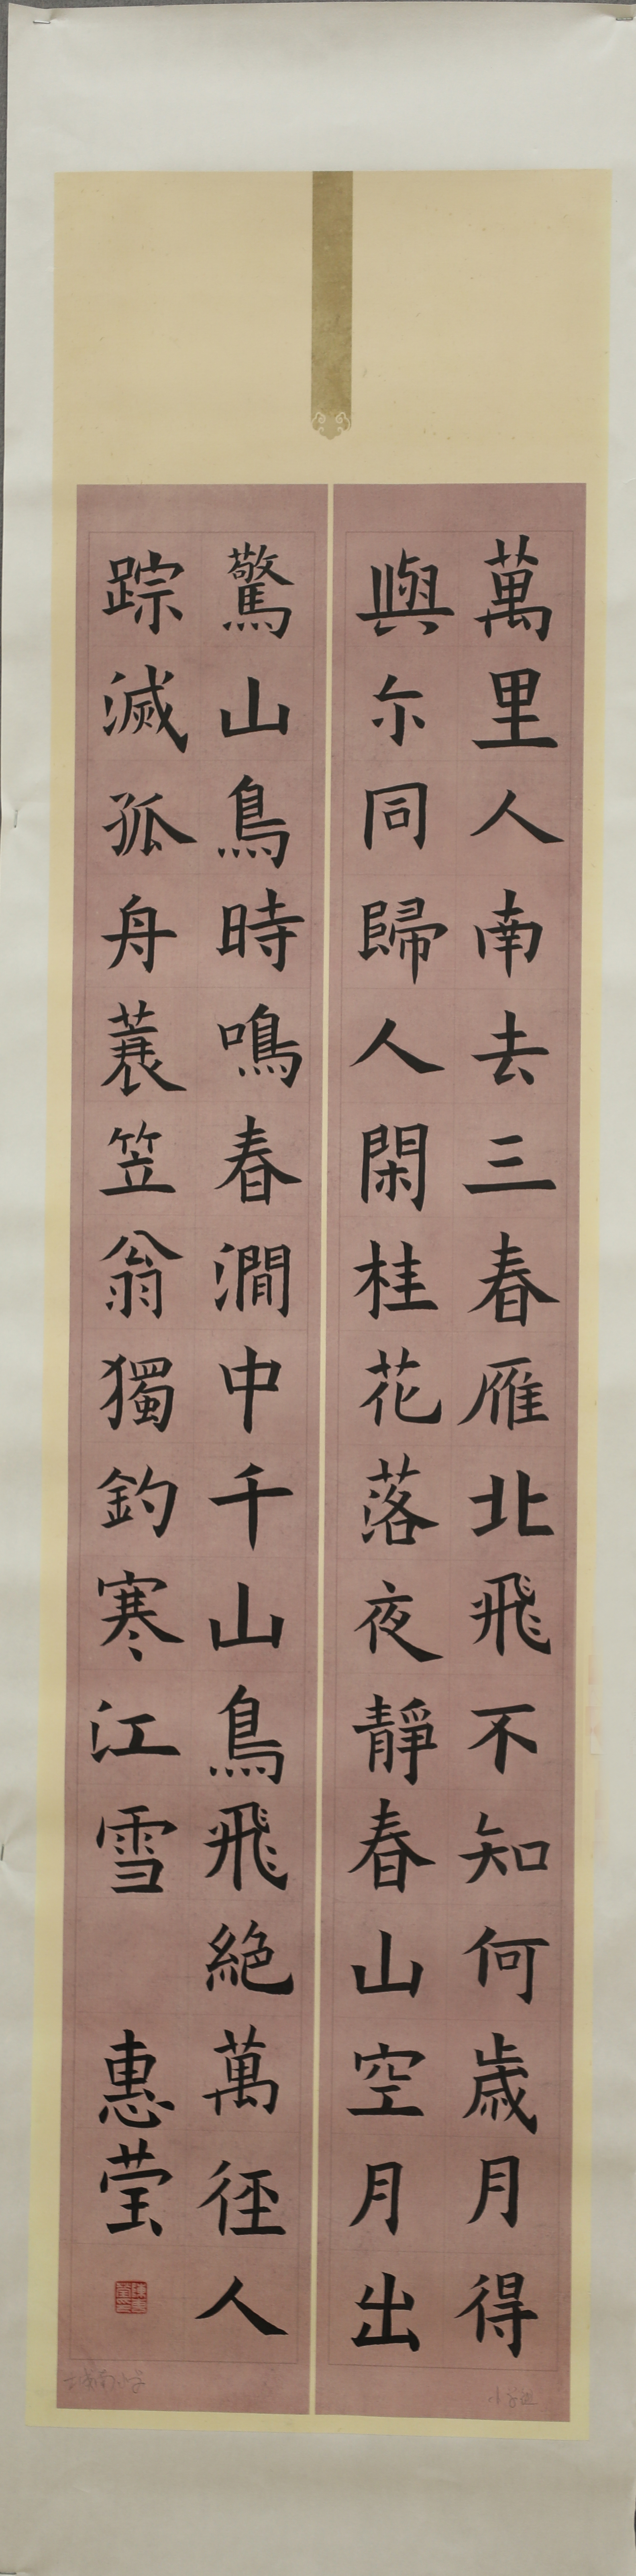 萬里人南去三春雁北飛不知何歳月得
與尓同歸人閑桂花落夜靜春山空月出
驚山鳥時鳴春澗中千山鳥飛絶萬徑人
踪滅孤舟蓑笠翁獨釣寒江雪 惠莹